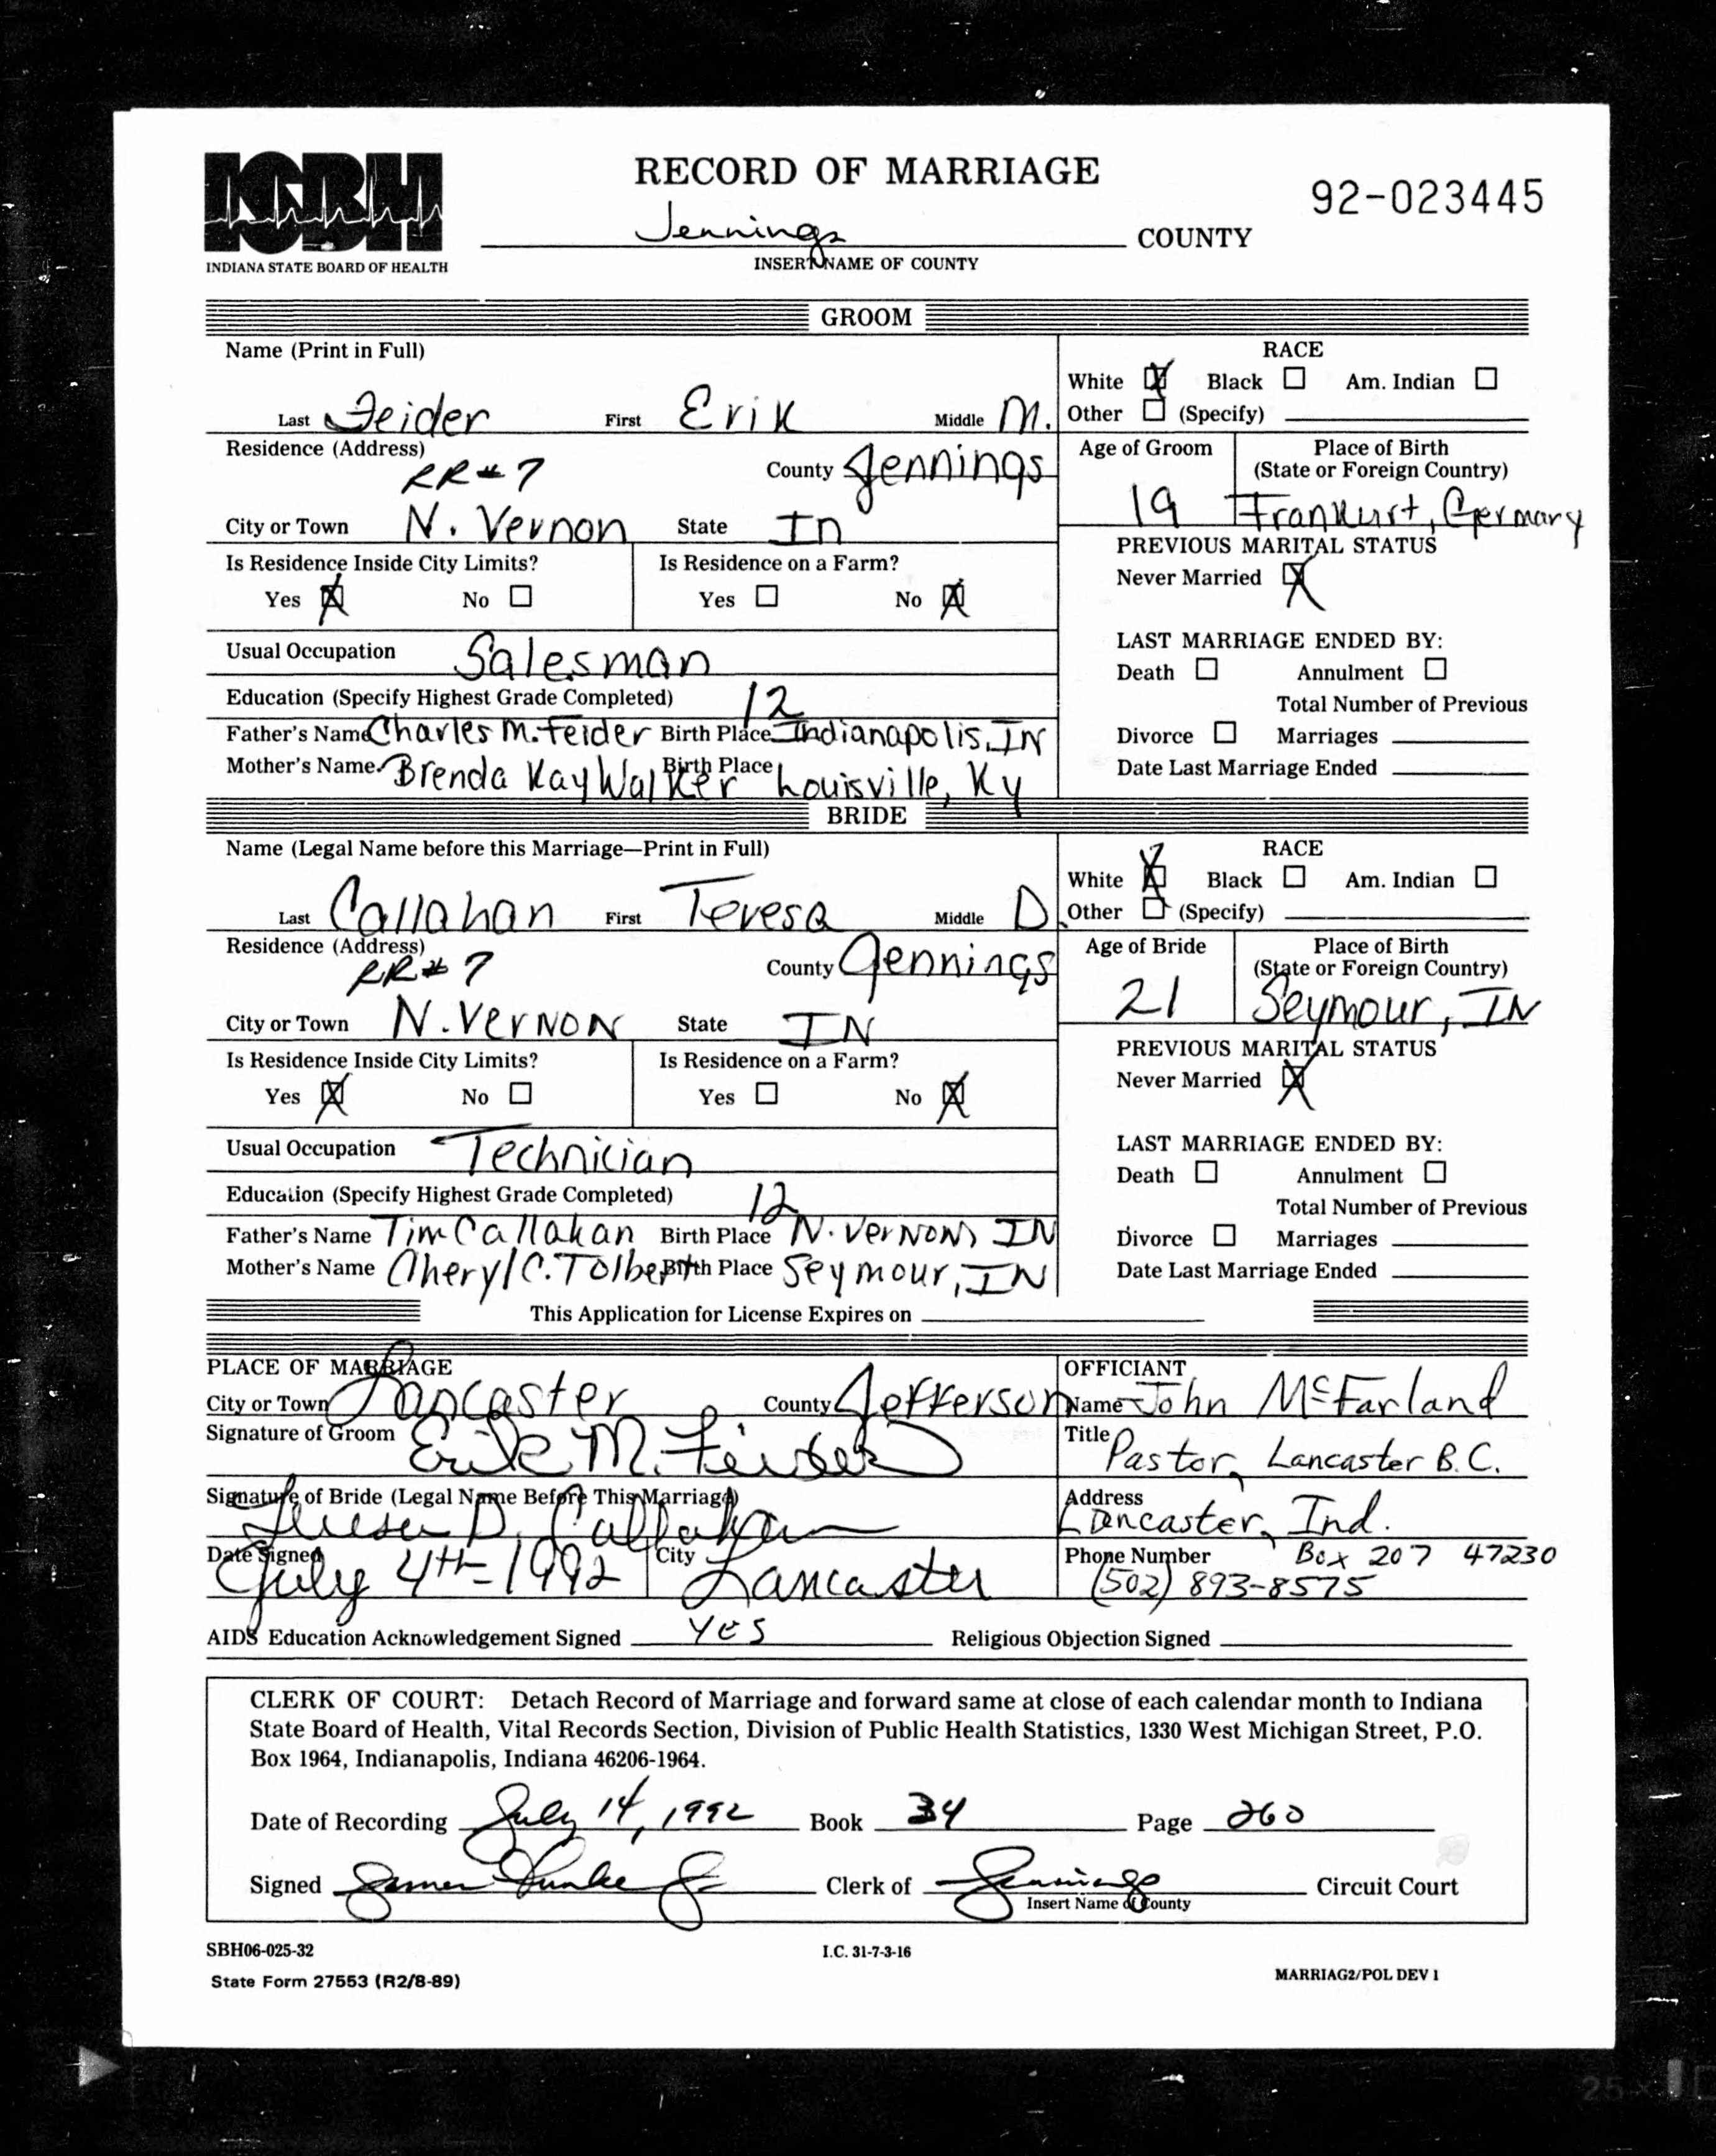 RECORD OF MARRIAGE
92-023445
ISBH
Jennings COUNTY
INDIANA STATE BOARD OF HEALTH
INSERT NAME OF COUNTY
GROOM
Name (Print in Full)
Last Feider First Erik Middle M.
RACE
White Black Am. Indian
Other (Specify)
Residence (Address) RR#7 County Jennings
City or Town N. Vernon State In
Age of Groom 19
Place of Birth
(State or Foreign Country)
Frankurt, Germany
Is Residence Inside City Limits? Is Residence on a Farm?
Yes No Yes No
PREVIOUS MARITAL STATUS
Never Married
Usual Occupation Salesman
Education (Specify Highest Grade Completed) 12
Father's Name Charles M. Feider Birth Place Indianapolis, IN
Mother's Name Brenda Kay Walker Birth Place Louisville, Ky
LAST MARRIAGE ENDED BY:
Death Annulment
Total Number of Previous
Divorce Marriages
Date Last Marriage Ended
BRIDE
Name (Legal Name before this Marriage—Print in Full)
Last Callahan First Teresa Middle D.
RACE
White Black Am. Indian
Other (Specify)
Residence (Address) RR#7 County Jennings
City or Town N. VERNON State IN
Age of Bride 21
Place of Birth
(State or Foreign Country)
Seymour, IN
Is Residence Inside City Limits? Is Residence on a Farm?
Yes No Yes No
PREVIOUS MARITAL STATUS
Never Married
Usual Occupation Technician
Education (Specify Highest Grade Completed) 12
Father's Name Tim Callahan Birth Place N. VERNON, IN
Mother's Name Cheryl C. Tolbert Birth Place Seymour, IN
LAST MARRIAGE ENDED BY:
Death Annulment
Total Number of Previous
Divorce Marriages
Date Last Marriage Ended
This Application for License Expires on
PLACE OF MARRIAGE
City or Town Lancaster County Jefferson
Signature of Groom Erik M. Feider
Signature of Bride (Legal Name Before This Marriage)
Teresa D. Callahan
Date Signed July 4th 1992 City Lancaster
OFFICIANT
Name John McFarland
Title Pastor, Lancaster B.C.
Address Lancaster, Ind.
Box 207 47230
Phone Number (502) 893-8575
AIDS Education Acknowledgement Signed YES Religious Objection Signed
CLERK OF COURT: Detach Record of Marriage and forward same at close of each calendar month to Indiana
State Board of Health, Vital Records Section, Division of Public Health Statistics, 1330 West Michigan Street, P.O.
Box 1964, Indianapolis, Indiana 46206-1964.
Date of Recording July 14, 1992 Book 34 Page 260
Signed James Jr. Clerk of Jennings Circuit Court
Insert Name of County
SBH06-025-32
I.C. 31-7-3-16
State Form 27553 (R2/8-89)
MARRIAG2/POL DEV 1